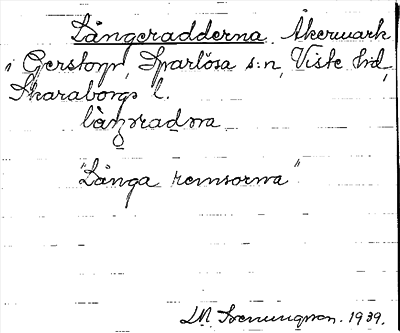 Långeradderna. Åkermark
i Gerstorp, Sparlösa s:n, Viste hd,
Skaraborgs l.
"Långa remsorna"
Svenungsson. 1939.